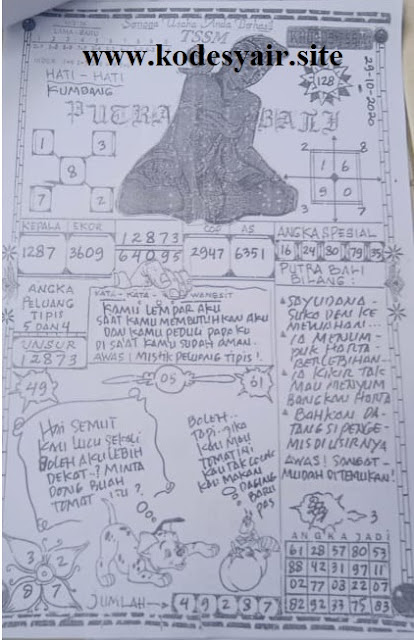 Semoga Usaha Anda Berhasil
TSSM
www.kodesyair.site
29-10-2020
128
HATI - HATI
KUMBANG
PUTRA BALI
1 3
8
7 2
2 8
1 6
9 0
3 7
KEPALA EKOR
1287 3609
12873
64095
COP AS
2947 6351
ANGKA SPESIAL
16 24 80 79 35
ANGKA
PELUANG
TIPIS
5 DAN 4
UNSUR
12873
KATA - KATA WANGSIT
KAMU LEMPAR AKU
SAAT KAMU MEMBUTUHKAN AKU
DAN KAMU PEDULI PADAKU
DI SAAT KAMU SUDAH AMAN.
AWAS! MISTIK PELUANG TIPIS!.
PUTRA BALI
BILANG:
SUKA DEMI KE
MEWAHAN...
IA MENUM-
PUK HARTA
BERLEBIHAN...
IA KIKIR TAK
MAU MENYUM
BANGKAN HARTA
BAHKAN DA-
TANG SI PENGE-
MIS DIUSIRNYA
AWAS! SANGAT-
MUDAH DITEMUKAN!
49
05
61
HAI SEMUT
KAU LUCU SEKALI
BOLEH AKU LEBIH
DEKAT..? MINTA
DONG BUAH
TOMAT ITU?
BOLEH..
TAPI JIKA
KAU MAU
TOMAT INI
KAU MAKAN
DAGING
BARU
PAS
3
3 2
8 7
JUMLAH
4 9 2 8 7
ANGKA JADI
61 28 57 80 53
88 42 31 97 11
02 77 03 22 07
82 92 33 75 83